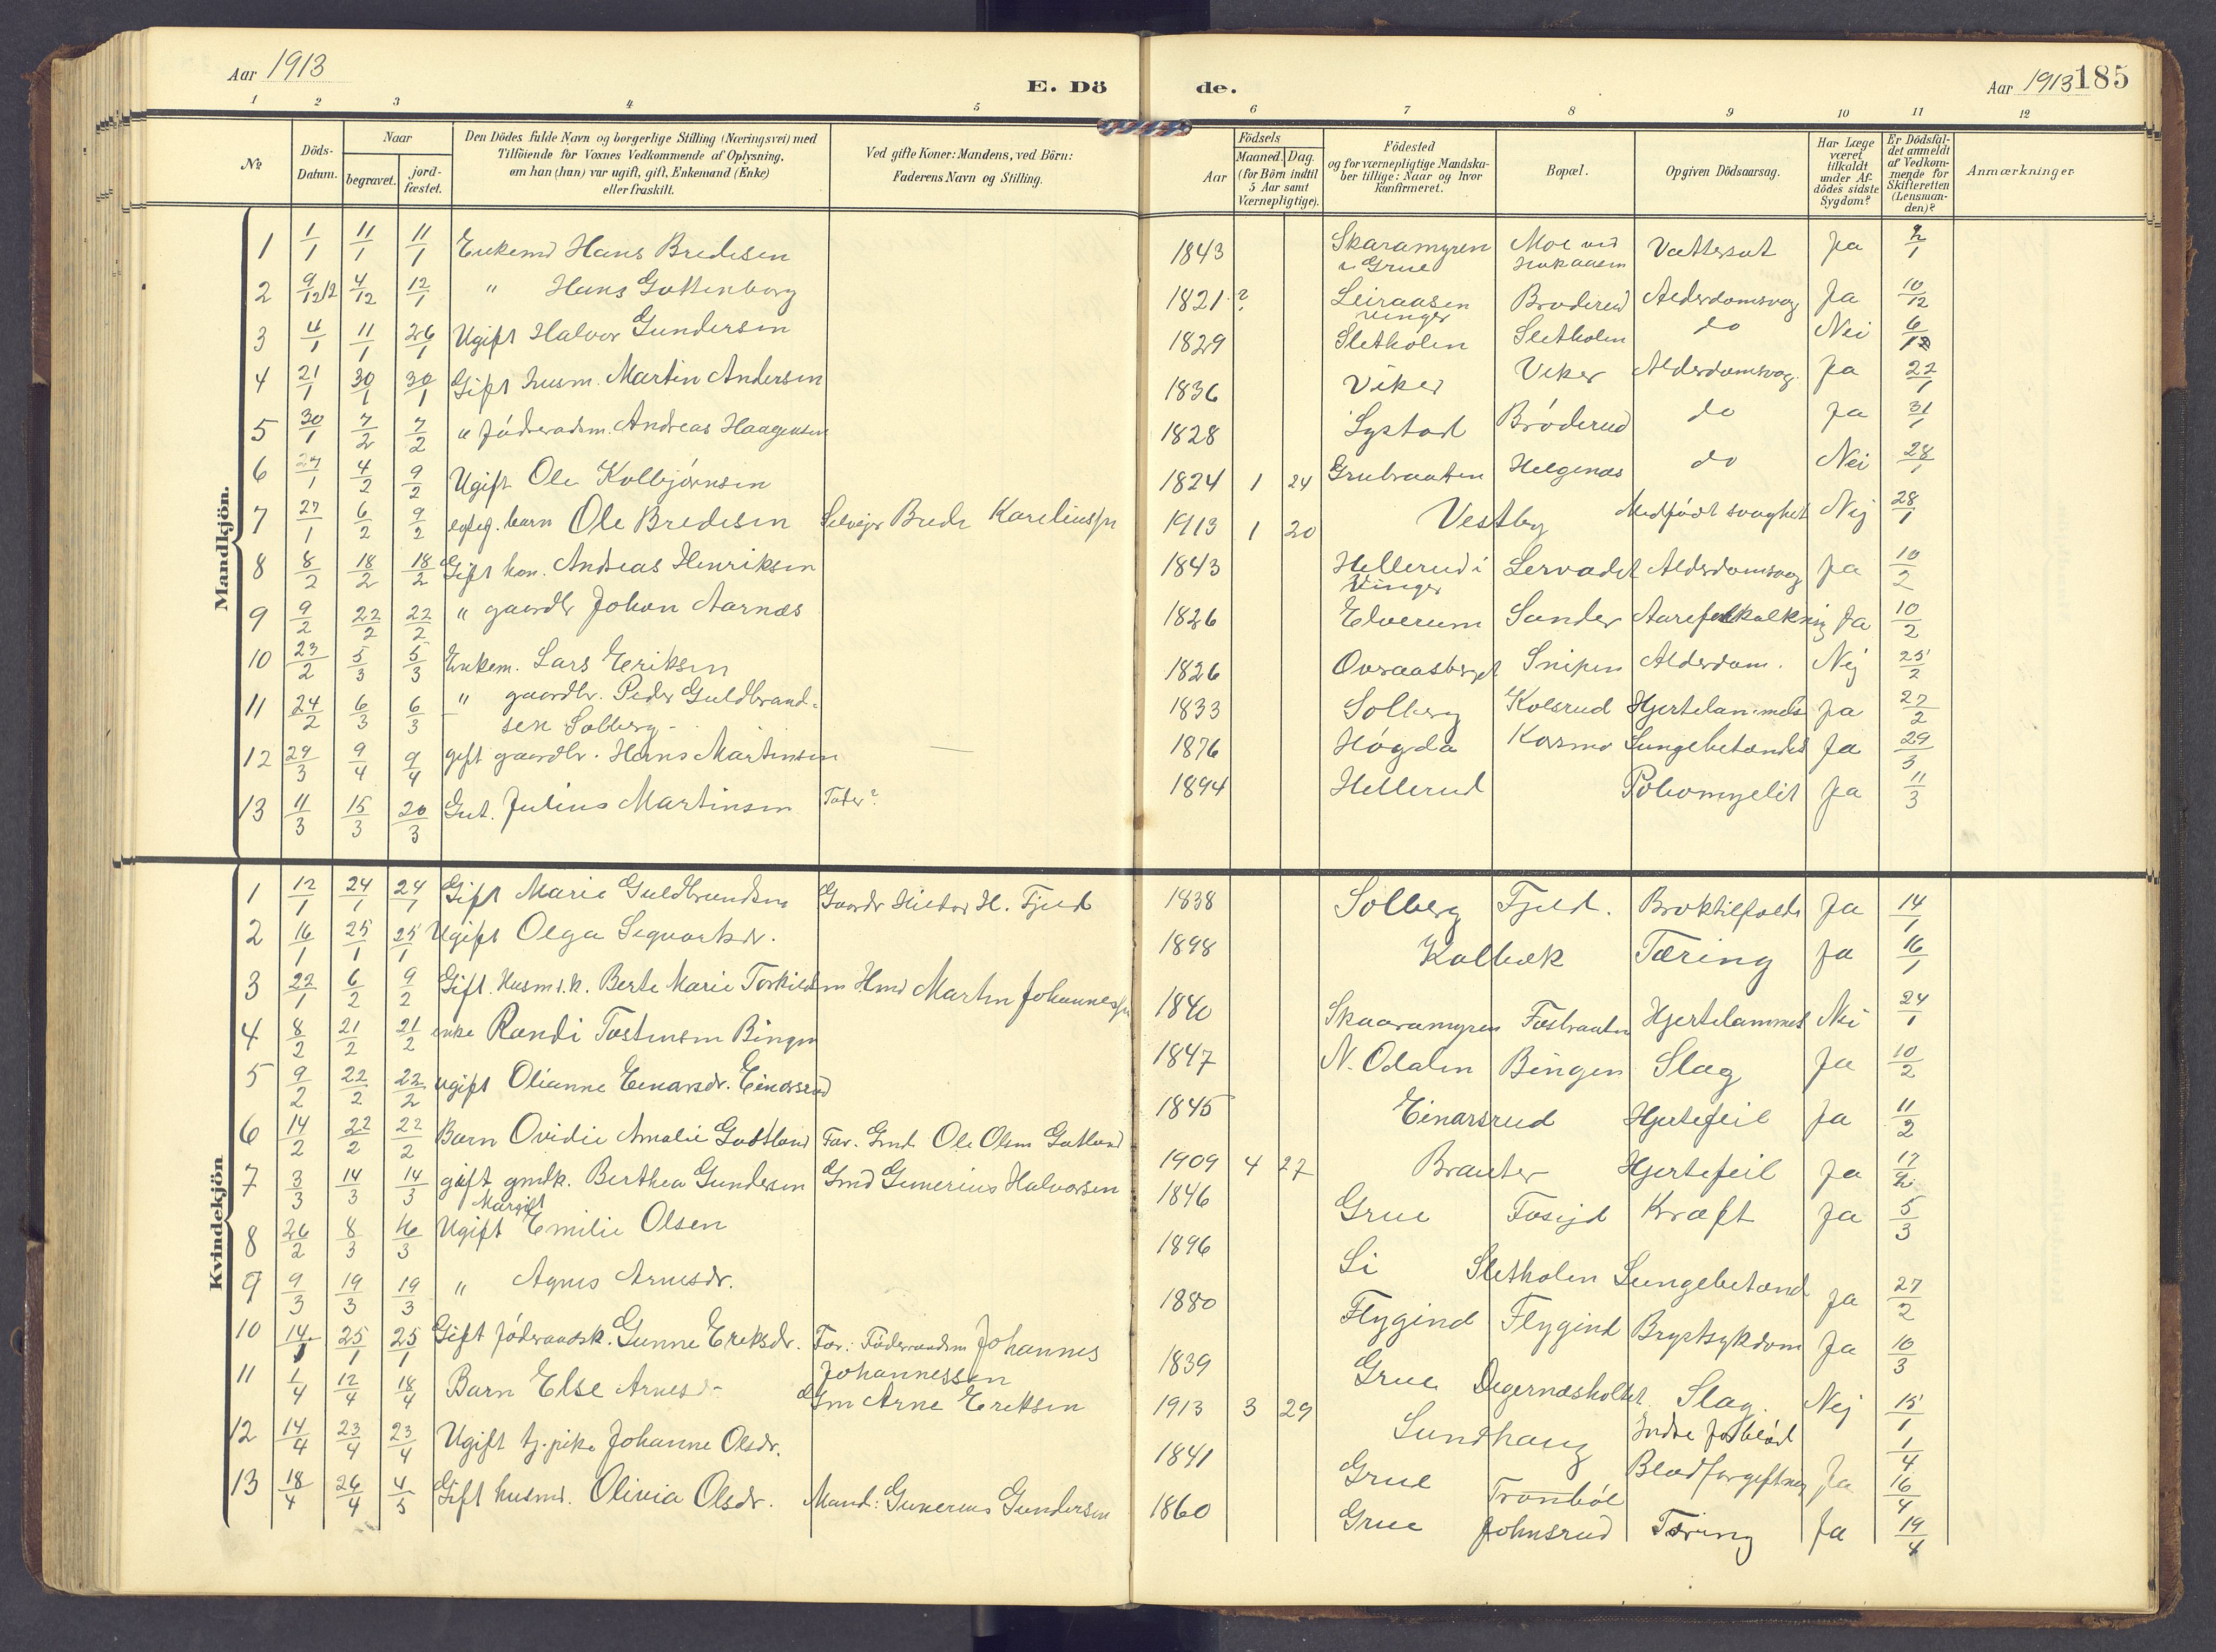 Aar 1913
E. Dö de.
Aar 1913 185
1 2 3 4 5 6 7 8 9 10 11 12
№
Döds-
Datum.
Naar
begravet.
jord-
fæstet.
Den Dödes fulde Navn og borgerlige Stilling (Næringsvei) med
Tilföiende for Voxnes Vedkommende af Oplysning,
om han (hun) var ugift, gift, Enkemand (Enke)
eller fraskilt.
Ved gifte Koner: Mandens, ved Börn:
Faderens Navn og Stilling.
Födsels
Aar
Maaned. Dag.
(for Börn indtil
5 Aar samt
Værnepligtige).
Födested
og for værnepligtige Mandska-
ber tillige: Naar og hvor
konfirmeret.
Bopæl.
Opgiven Dödsaarsag.
Har Læge
været
tilkaldt
under Af-
dödes sidste
Sygdom?
Er Dödsfal-
det anmeldt
af Vedkom-
mende for
Skifteretten
(Lensman-
den)?
Anmærkninger
Mandkjön.
1 1/1 11/1 11/1 Enkemd Hans Bredesen 1843 Skaramyren i Grue Moe ved Vattersot Ja 2/1
2 9/12 12 4/12 12/1 " Hans Gottenborg 1821 ? Leiraasen Vinger Broderud Alderdomsvag Ja 10/12
3 4/1 11/1 26/1 Ugift Halvor Gundersen 1829 Sletholen Sletholen do Nei 6/1
4 21/1 30/1 30/1 Gift husm. Martin Andersen 1836 Viker Viker Alderdomsvag. Ja 22/1
5 30/1 7/2 7/2 " föderaadsm. Andreas Haagensen 1828 Systad Bröderud do Ja 31/1
6 27/1 4/2 9/2 Ugift Ole Kolbjörnsen 1824 1 24 Grubraaten Helgenæs do Nei 28/1
7 27/1 6/2 9/2 egteg. barn Ole Bredesen Selvejer Brede Kareliussen 1913 1 20 Vestby Medfödt svaghet Nej 28/1
8 8/2 18/2 18/2 Gift kon. Andreas Henriksen 1843 Hellerud i Vinger Lervadet Alderdomsvag Ja 10/2
9 9/2 22/2 22/2 " gaardbr Johan Aarnæs 1826 Elverum Sander Aareforkalkning Ja 10/2
10 23/2 5/3 5/3 Enkem. Lars Eriksen 1826 Ovraasberget Snipen Alderdom. Nej 25/2
11 24/2 6/3 6/3 " gaardbr. Peder Guldbrand-
sen Solberg - 1833 Solberg Kolsrud Hjertelammelse Ja 27/2
12 29/3 9/4 9/4 gift gaardbr. Hans Martinsen 1876 Högda Kosmo Lungebetændels Ja 29/3
13 11/3 15/3 20/3 Gut. Julius Martinsen Fader? 1894 Hellerud Poliomyelit Ja 11/3
Kvindekjön
1 12/1 24/1 24/1 Gift Marie Guldbrandsen Gaardbr H. Fjeld 1838 Solberg Fjeld. Broktilfælde Ja 14/1
2 16/1 25/1 25/1 Ugift Olga Sigvartsdr. 1898 Kalbæk Tæring Ja 16/1
3 22/1 6/2 9/2 Gift. Husm.k. Berte Marie Torkildsen Hmd Martin Johannessen 1840 Skaaramyren Fosbraaten Hjertelammels Nei 24/1
4 8/2 21/2 21/2 enke Randi Tostensen Bingen 1847 N. Odalen Bingen Slag Ja 10/2
5 9/2 22/2 22/2 ugift Olianne Einarsdr. Einarsrud 1845 Einarsrud Hjertefeil Ja 11/2
6 14/2 22/2 22/2 Barn Ovidie Amalie Gotland Far. Gmd Ole Olsen Gotland 1909 4 27 Brauter Hjertefeil Ja 17/2
7 3/3 14/3 14/3 gift gmdk. Berthea Gundersen Gmd Gunerius Halvorsen 1846 Grue Fosejd Kræft Ja 5/3
8 26/2 8/3 16/3 Ugift Margit Emilie Olsen 1896 Li Sletholen Lungebetænd Ja 27/2
9 9/3 19/3 19/3 " Agnes Arnesdr. 1880 Flygind Flygind Brystsykdom Ja 10/3
10 14/1 25/1 25/1 Gift föderaadsk. Gunne Eriksdr. Far: Föderaadsm Johannes
Johannessen 1839 Grue Degernæsholtet Slag. Nej 15/1
11 1/4 12/4 18/4 Barn Else Arnesdr. Gm Arne Eriksen 1913 3 29 Sundhaug Indre forblød 1/4
12 14/4 23/4 23/4 Ugift tj.pike Johanne Olsdr. 1841 Grue Tronböl Blodforgiftning Ja 16/4
13 18/4 26/4 4/5 Gift husmd. Olivia Olsdr. Mand: Gunerius Gundersen 1860 Grue Johnsrud Tæring Ja 19/4